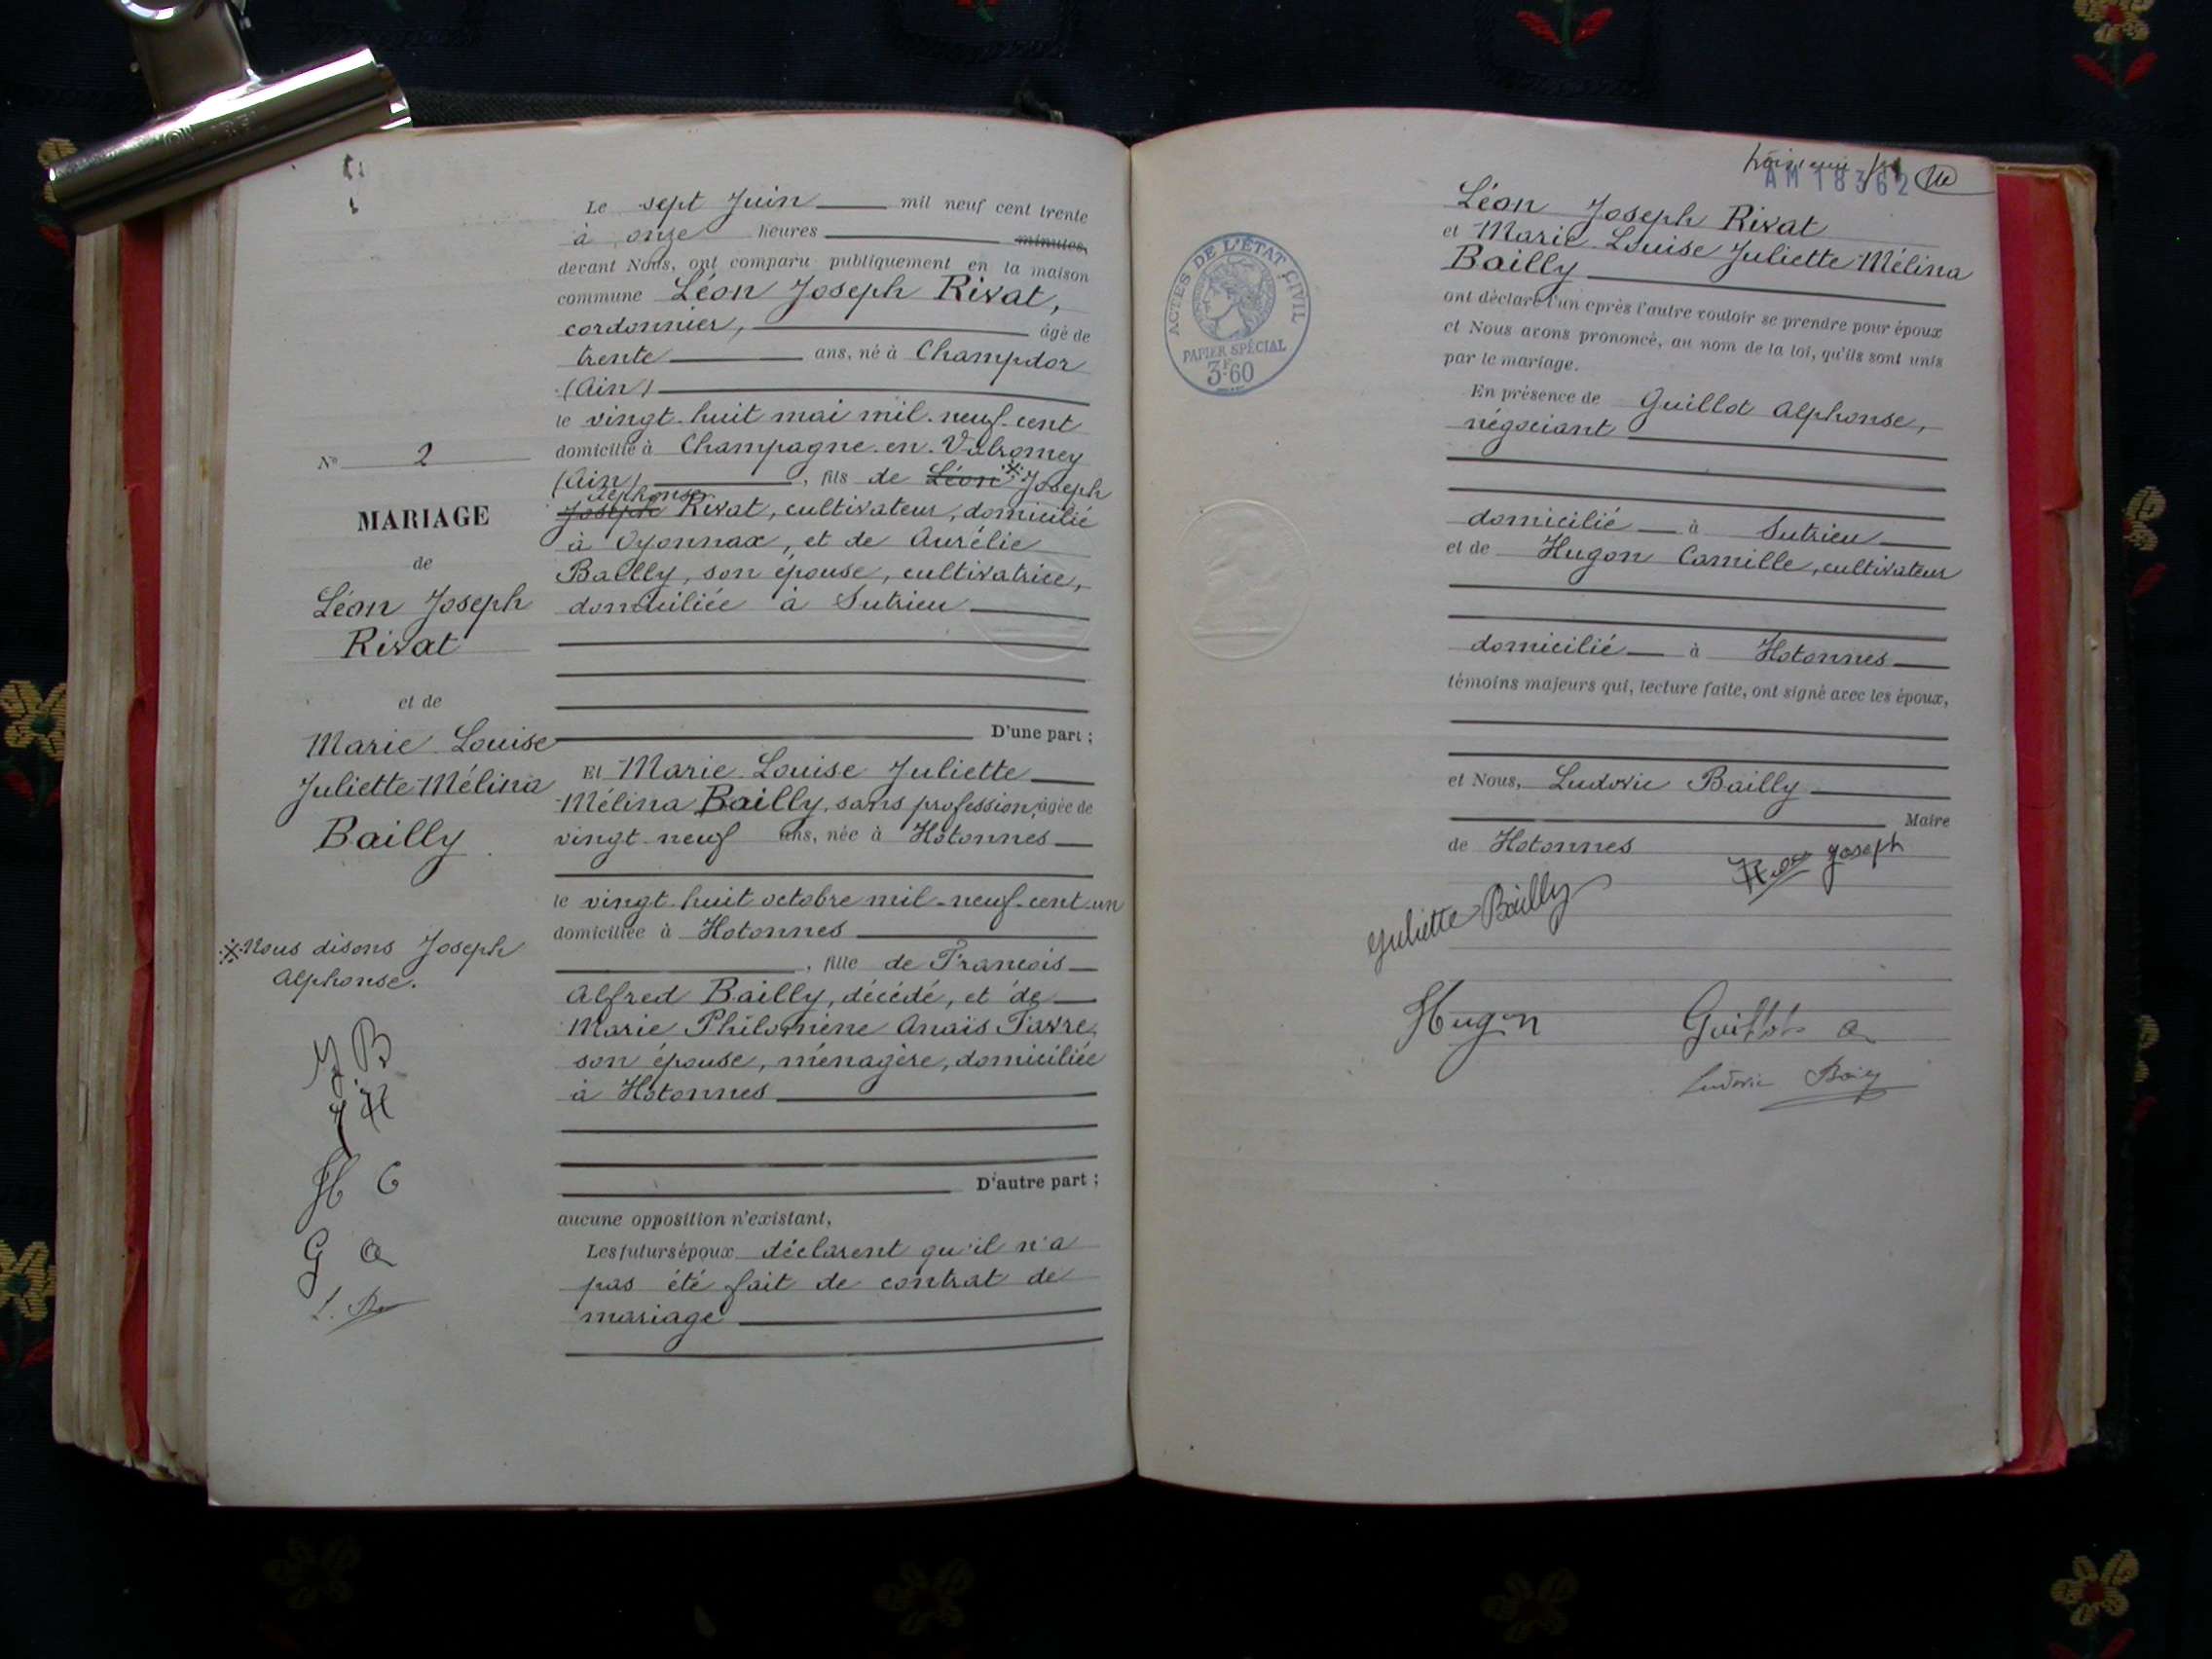 Le sept Juin mil neuf cent trente
à onze heures minutes
devant Nous, ont comparu publiquement en la maison
commune Léon Joseph Rivat,
cordonnier, âgé de
trente ans, né à Champdor
(Ain)
le vingt-huit mai mil-neuf-cent
domicilié à Champagne-en-Valromey
(Ain), fils de Léon ※ Joseph
Alphonse
Joseph Rivat, cultivateur, domicilié
à Oyonnax, et de Aurélie
Bailly, son épouse, cultivatrice,
domiciliée à Sutrieu
D'une part ;
Et Marie Louise Juliette
Mélina Bailly, sans profession, âgée de
vingt-neuf ans, née à Hotonnes
le vingt-huit octobre mil-neuf-cent-un
domiciliée à Hotonnes
, fille de François
Alfred Bailly, décédé, et de
Marie Philomène Anaïs Favre,
son épouse, ménagère, domiciliée
à Hotonnes
D'autre part ;
aucune opposition n'existant,
Les futurs époux déclarent qu'il n'a
pas été fait de contrat de
mariage
N° 2
MARIAGE
de
Léon Joseph
Rivat
et de
Marie Louise
Juliette Mélina
Bailly
※ Nous disons Joseph
Alphonse.
J B
H C
G a
L. B
AM 18362
Léon Joseph Rivat
et Marie Louise Juliette Mélina
Bailly
ont déclaré l'un après l'autre vouloir se prendre pour époux
et Nous avons prononcé, au nom de la loi, qu'ils sont unis
par le mariage.
En présence de Guillot Alphonse,
négociant
domicilié à Sutrieu
et de Hugon Camille, cultivateur
domicilié à Hotonnes
témoins majeurs qui, lecture faite, ont signé avec les époux,
et Nous, Ludovic Bailly
Maire
de Hotonnes
Joseph
Juliette Bailly
Hugon
Guillot a
Ludovic
ACTES DE L'ÉTAT CIVIL
PAPIER SPÉCIAL
3F60